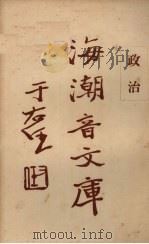 政治
海潮音文庫
于右任
mtoou.info